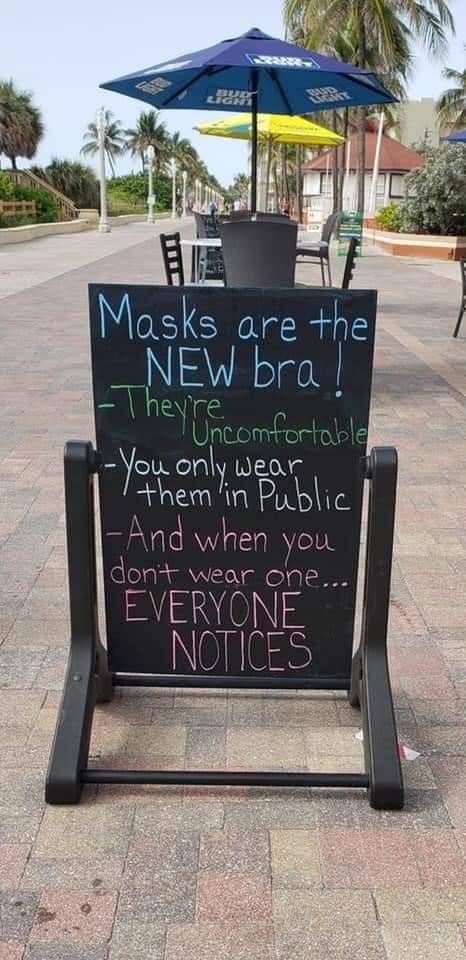 BUD
LIGHT
BUD
LIGHT
Masks are the
NEW bra!
-They're
Uncomfortable
-You only wear
them in Public
-And when you
don't wear one...
EVERYONE
NOTICES